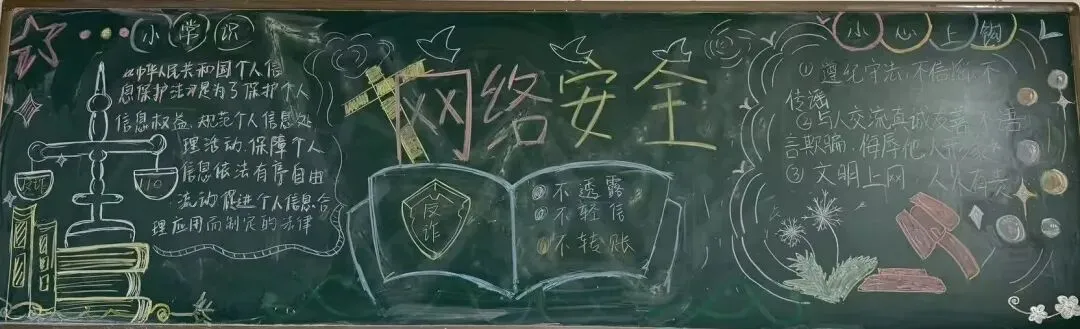 小常识
《中华人民共和国个人信
息保护法》是为了保护个人
信息权益、规范个人信息处
理活动、保障个人
信息依法有序自由
流动、促进个人信息合
理应用而制定的法律
反诈
110
网络安全
反诈
①不透露
②不轻信
③不转账
小心上钩
①遵纪守法,不信谣,不
传谣
②与人交流真诚友善,不语
言欺骗、侮辱他人
③文明上网,人人有责